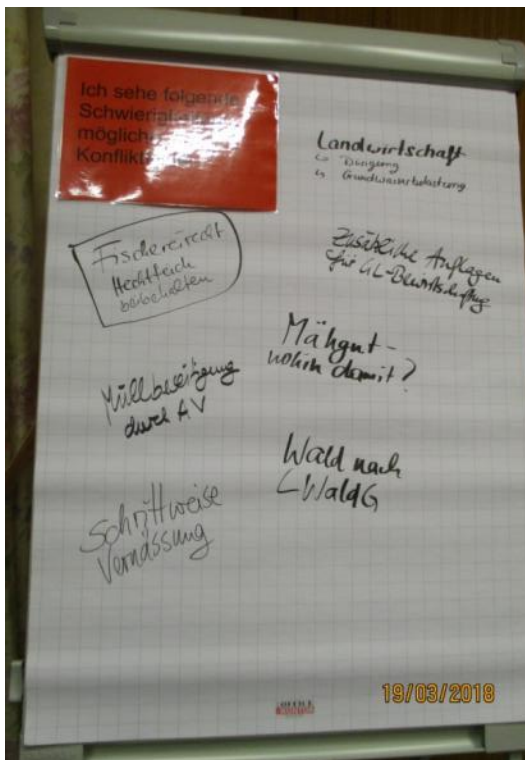 Ich sehe folgende
möglich
Konflikt
Landwirtschaft
↳ Düngung
↳ Grundwasserbelastung
Fischereirecht
Hechtteich
beibehalten
Zusätzliche Auflagen
für GL-Bewirtschaftung
Mähgut -
wohin damit?
Müllbeseitigung
durch AV
Wald nach
LWaldG
Schrittweise
Vernässung
19/03/2018